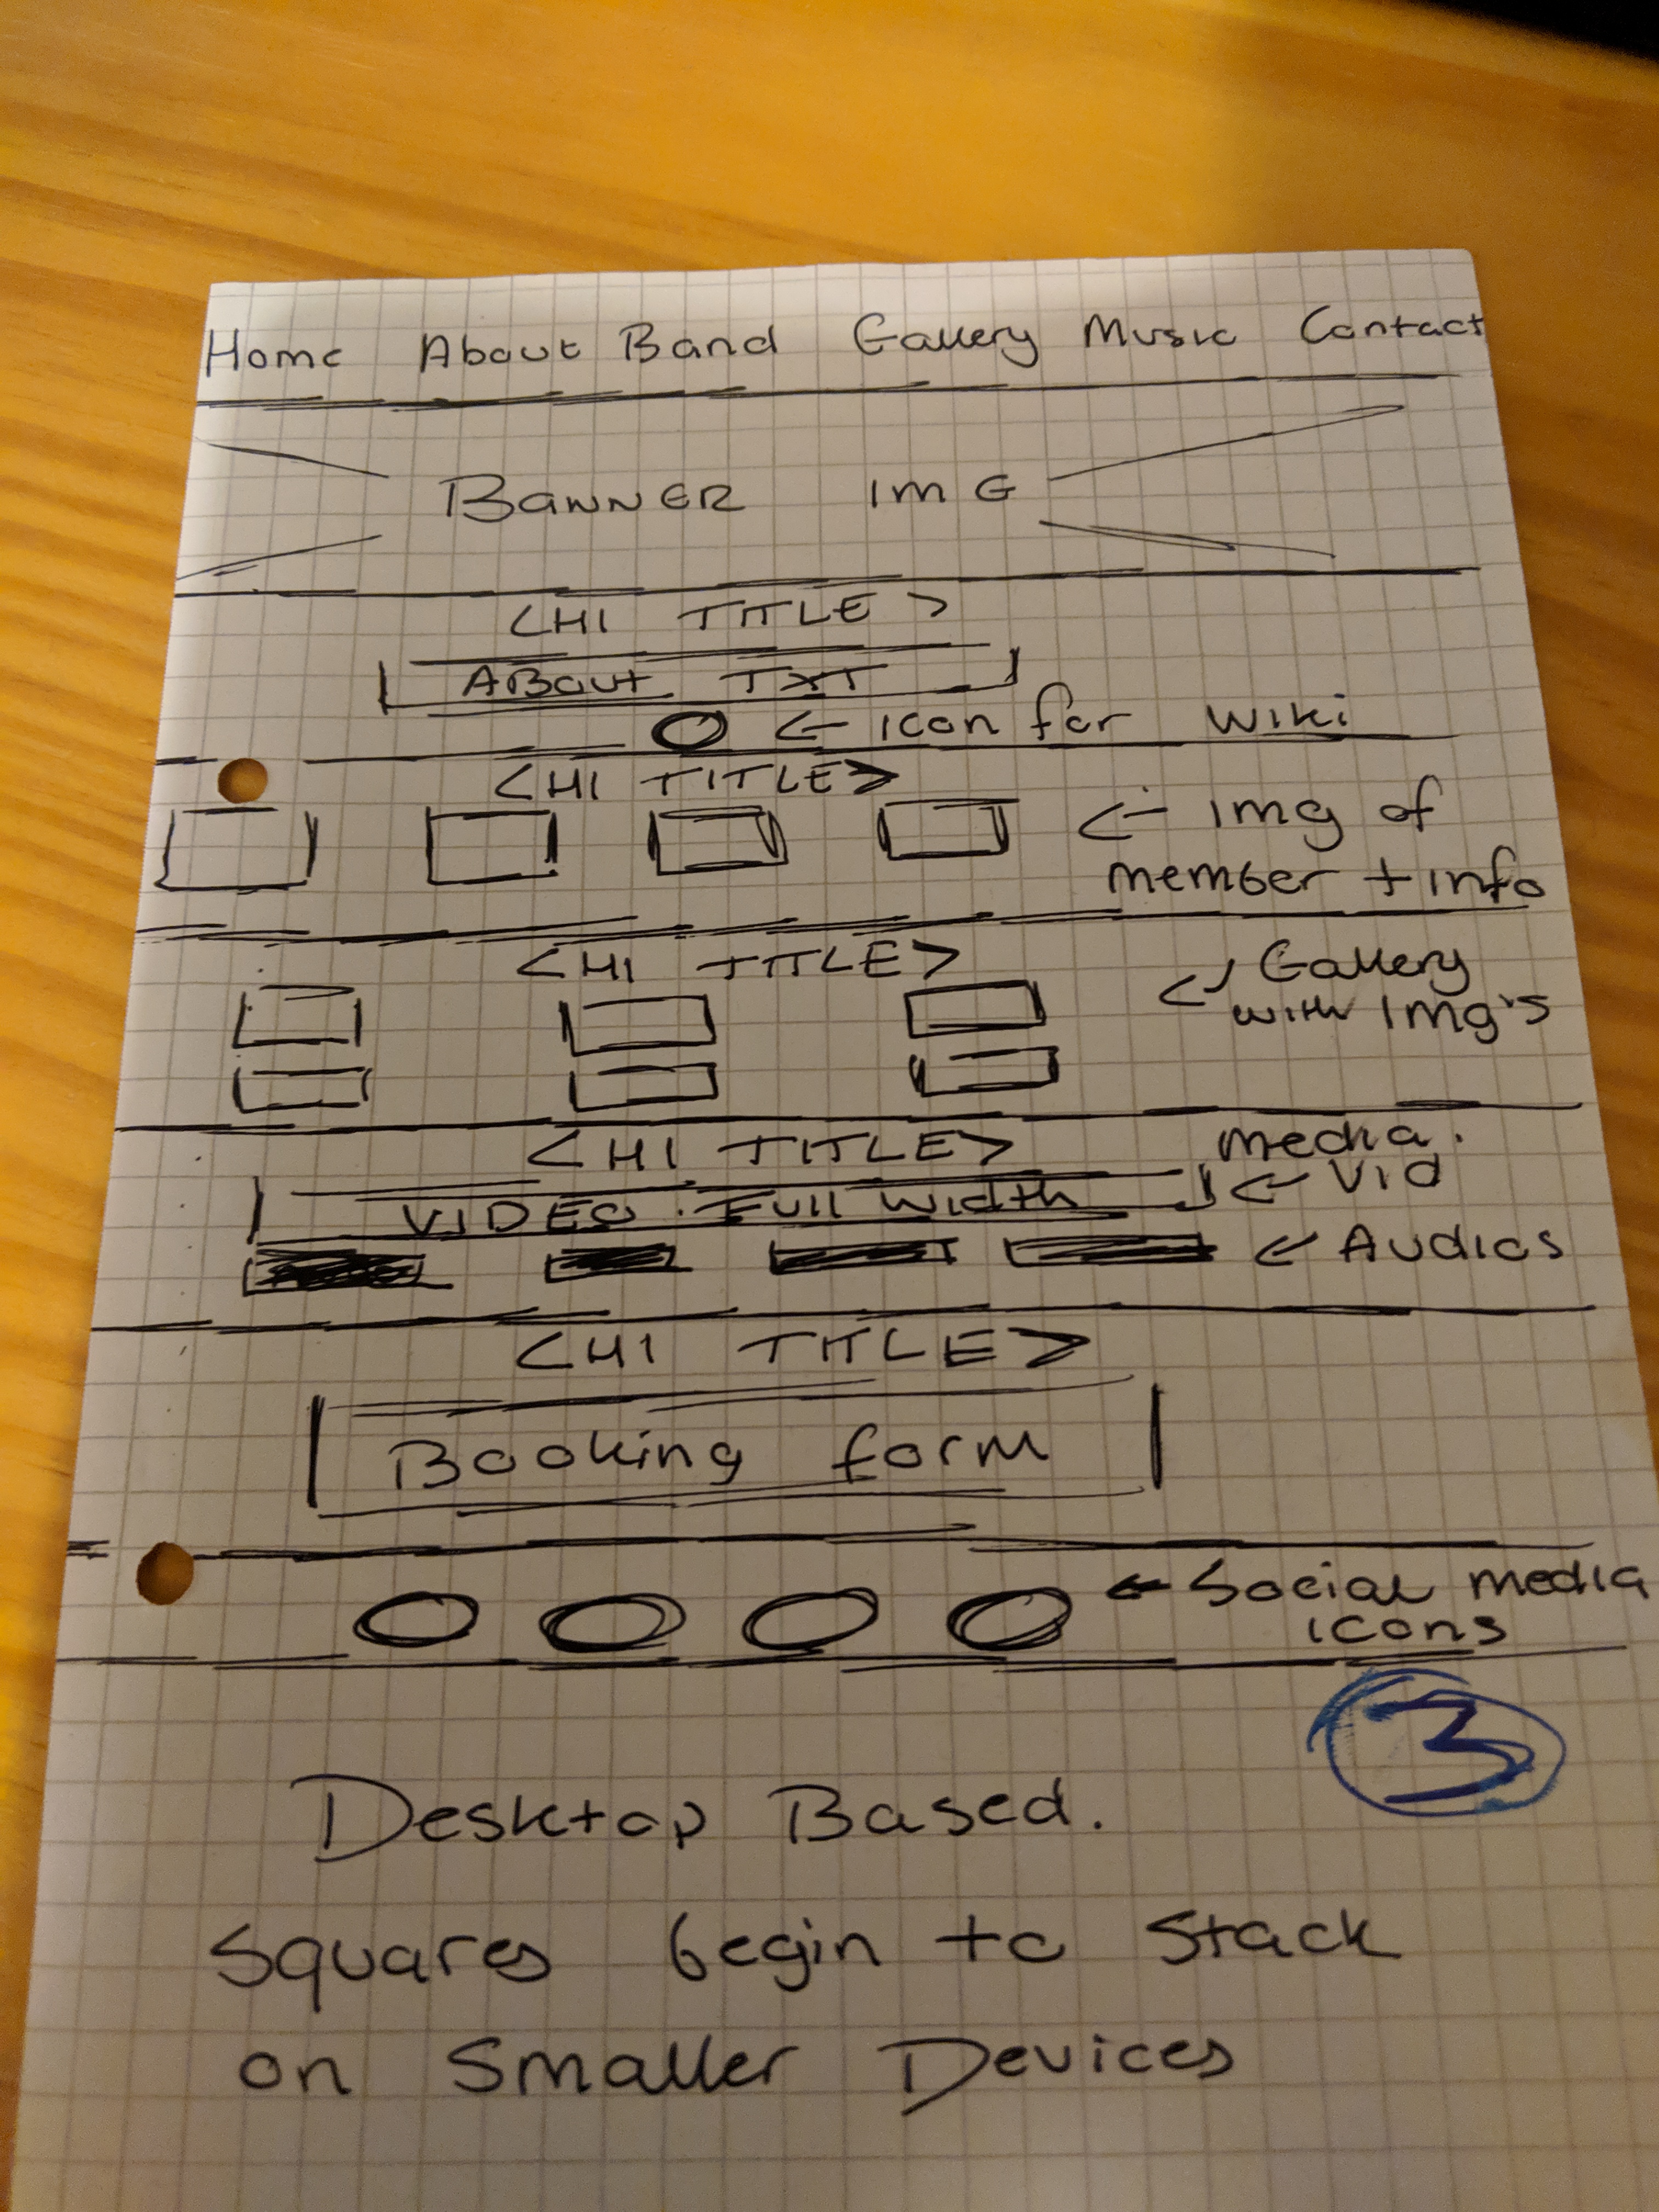 Home About Band Gallery Music Contact
BANNER IMG
<H1 TITLE>
ABout TXT
← icon for wiki
<H1 TITLE>
← img of
member + info
<H1 TITLE>
← Gallery
with Img's
<H1 TITLE> media.
VIDEO. Full Width ← Vid
← Audios
<H1 TITLE>
Booking form
← Social media
icons
3
Desktop Based.
Squares begin to Stack
on Smaller Devices